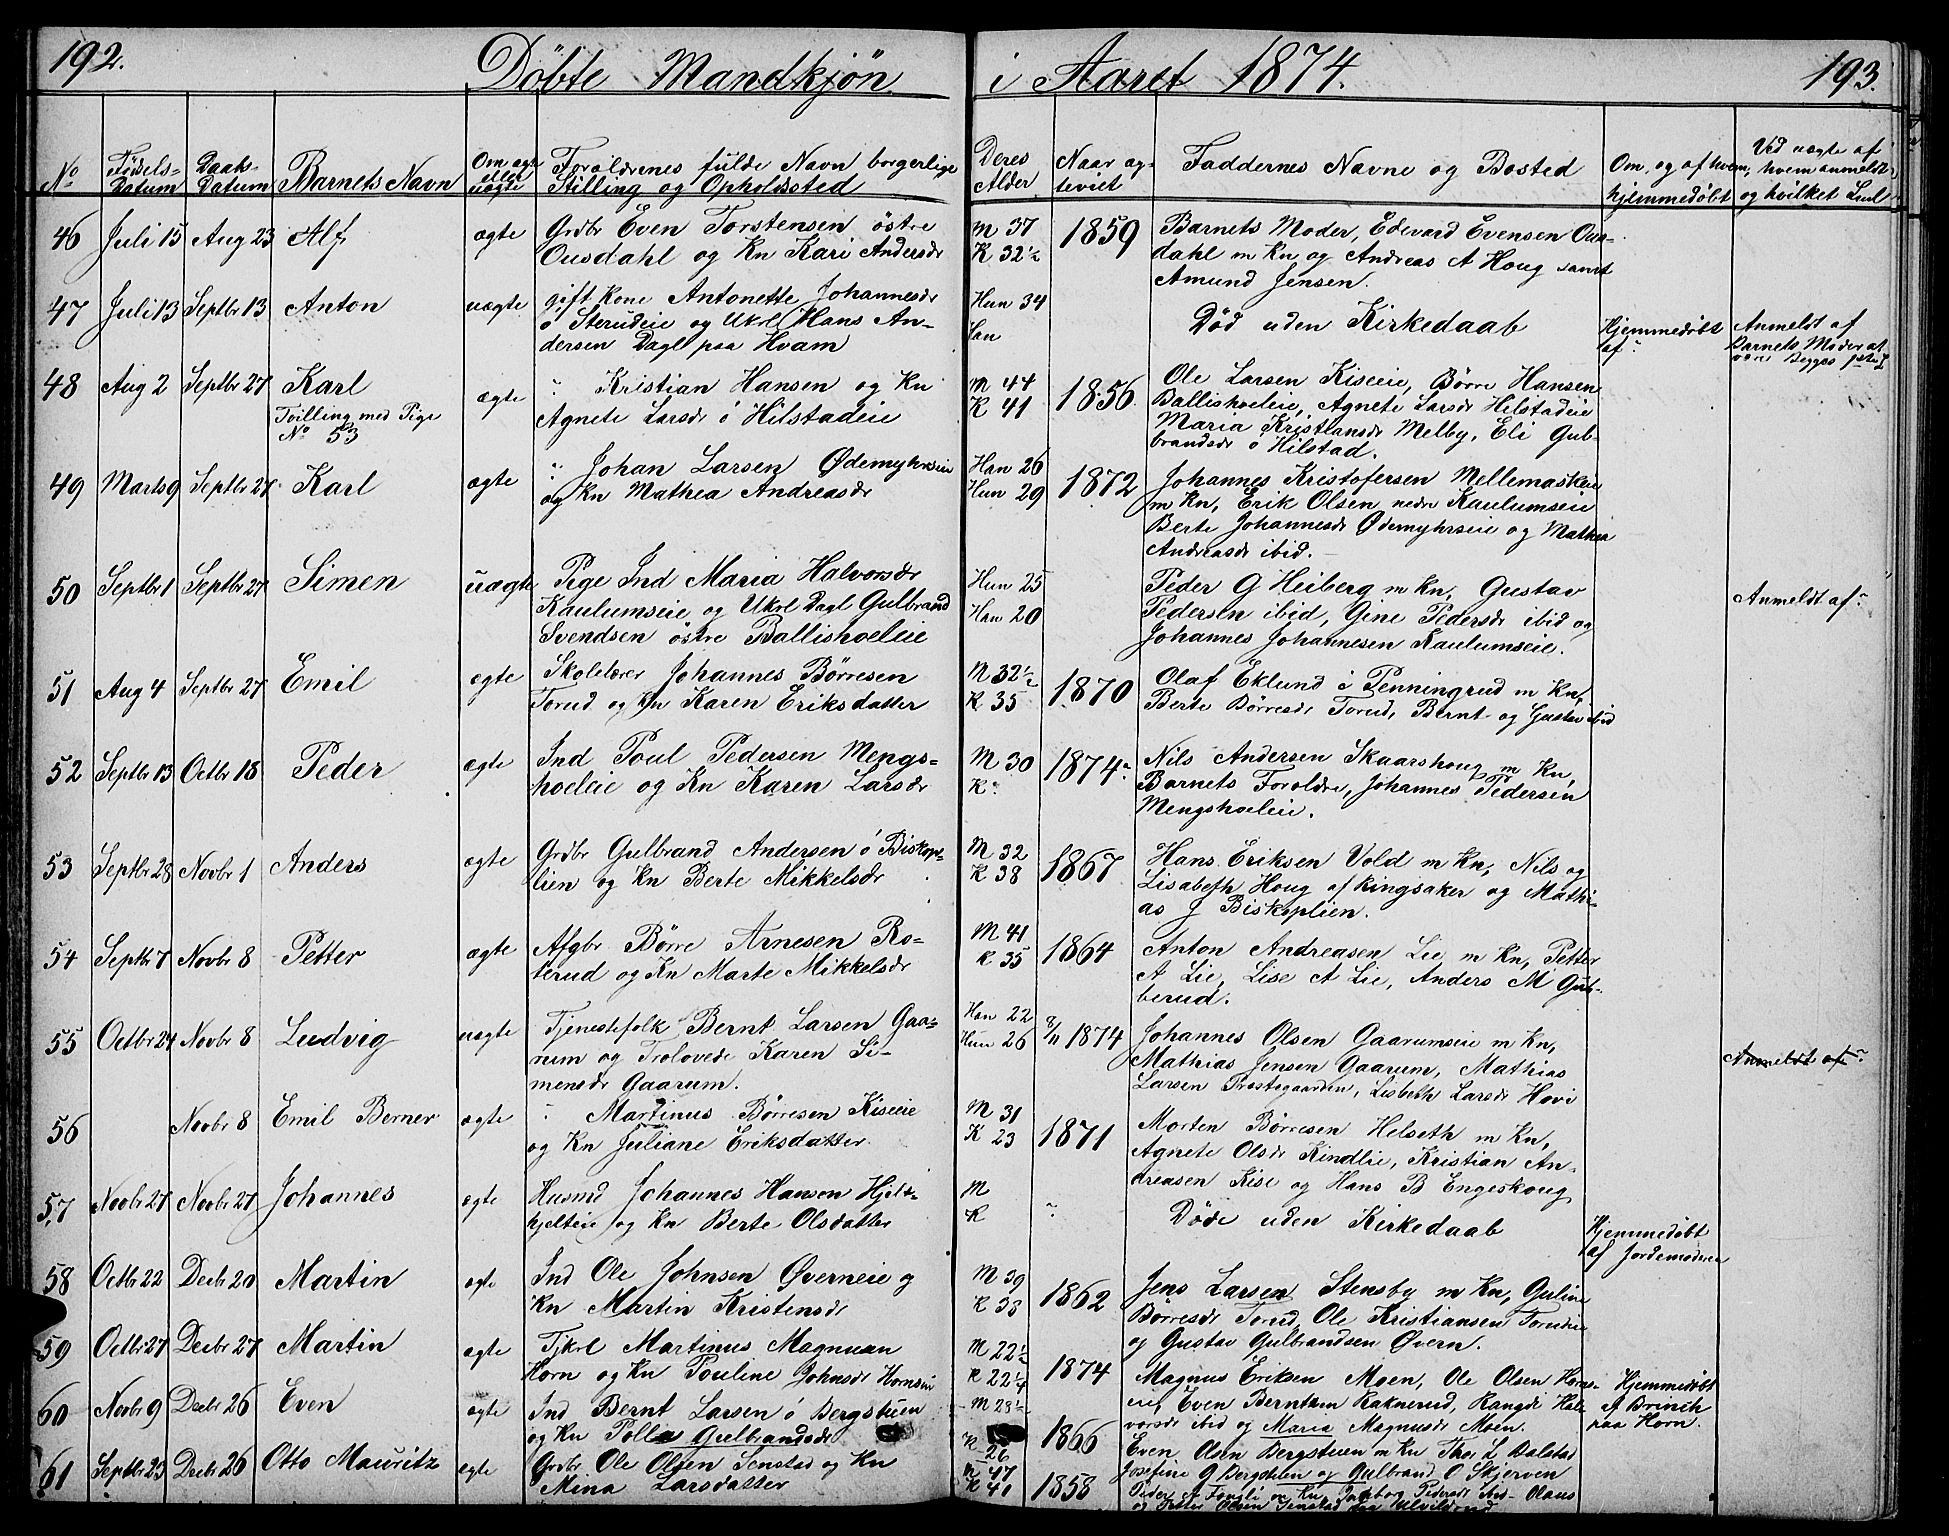 192.
Döbte Mandkjön
i Aaret 1874.
193.
No
Födsels-
Datum
Daabs-
Datum
Barnets Navn
Om ægte
eller
uægte
Forældrenes fulde Navn borgerlige
Stilling og Opholdssted
Deres
Alder
Naar æg-
teviet
Faddernes Navne og Bosted
Om, og af hvem
hjemmedöbt
Ved uægte af
hvem anmeldt
og hvilket
46 Juli 15 Aug 23 Alf ægte Grdbr Even Torstensen östre
Ousdahl og Kn Kari Andersdr
M 37
K 32½
1859
Barnets Moder, Edevard Evensen Ous-
dahl m Kn og Andreas A Houg samt
Amund Jensen.
47 Juli 13 Septbr 13 Anton uægte gift Kone Antonette Johannesdr
ö Sterudeie og Ukrl Hans An-
dersen Dagl paa Hvam
Hun 34
Han
Död uden Kirkedaab
Hjemmedöbt
af "
Anmeldt af
Barnets Moder
48 Aug 2 Septbr 27 Karl
Tvilling med Pige
No 53
ægte " Kristian Hansen og Kn
Agnete Larsdr ö Hilstadeie
M 44
K 41
1856
Ole Larsen Kiseie, Börre Hansen
Ballishoeleie, Agnete Larsdr Hilstadeie
Maria Kristiansdr Melby, Eli Gul-
brandsdr ö Hilstad.
49 Marts 9 Septbr 27 Karl ægte " Johan Larsen Ødemyhrseie
og Kn Mathea Andreasdr
Han 26
Hun 29
1872
Johannes Kristofersen Mellemaskeie
m Kn, Erik Olsen nedre Kaulumseie
Berte Johannesdr Ødemyhrseie og Mathea
Andreasdr ibid. -
50 Septbr 1 Septbr 27 Simen uægte Pige Ind Maria Halvorsdr
Kaulumseie og Ukrl Dagl Gulbrand
Svendsen östre Ballishoeleie
Hun 25
Han 20
Peder G Heiberg m Kn, Gustav
Pedersen ibid, Gine Pedersdr ibid og
Johannes Johannesen Kaulumseie.
Anmeldt af "
51 Aug 4 Septbr 27 Emil ægte Skolelærer Johannes Börresen
Torud og Kn Karen Eriksdatter
M 32½
K 35
1870
Olaf Eklund i Penningrud m Kn,
Berte Börresdr Torud, Bernt og Gustav ibid
52 Septbr 13 Octbr 18 Peder ægte Ind Poul Pedersen Mengs-
hoeleie og Kn Karen Larsdr
M 30
K "
1874 "
Nils Andersen Skaarshoug m Kn,
Barnets Forældre, Johannes Pedersen
Mengshoeleie.
53 Septbr 28 Novbr 1 Anders ægte Grdbr Gulbrand Andersen ö Biskop-
lien og Kn Berte Mikkelsdr
M 32
K 38
1867
Hans Eriksen Vold m Kn, Nils og
Lisabeth Houg af Ringsaker og Mathi-
as J Biskoplien.
54 Septbr 7 Novbr 8 Petter ægte Afgbr Börre Arnesen Ro-
terud og Kn Marte Mikkelsdr
M 41
K 35
1864
Anton Andreasen Lie m Kn, Petter
A Lie, Lise A Lie, Anders M Gul-
berud.
55 Octbr 24 Novbr 8 Ludvig uægte Tjenestefolk Bernt Larsen Gaa-
rum og Trolovede Karen Si-
mensdr Gaarum.
Han 22
Hun 26
8/11 1874
Johannes Olsen Gaarumseie m Kn,
Mathias Jensen Gaarum, Mathias
Larsen Prestegaarden, Lisbeth Larsdr Hovi
Anmeldt af "
56 Novbr 8 Emil Berner ægte " Martinus Börresen Kiseie
og Kn Juliane Eriksdatter
M 31
K 23
1871
Morten Börresen Helseth m Kn,
Agnete Olsdr Kindlie, Kristian An-
dreasen Kise og Hans B Engeskoug
57 Novbr 27 Novbr 27 Johannes ægte Husmd Johannes Hansen Hjelt-
hjelteie og Kn Berte Olsdatter
M
K
"
Döde uden Kirkedaab
Hjemmedöbt
af Jordemoderen
58 Octbr 22 Decbr 20 Martin ægte Ind Ole Johnsen Øverneie og
Kn Martin Kristensdr
M 39
K 38
1862
Jens Larsen Stensby m Kn, Guline
Börresdr Torud, Ole Kristiansen Torudeie
og Gustav Gulbrandsen Øvern.
59 Octbr 27 Decbr 27 Martin ægte Tjkrl Martinus Magnusen
Horn og Kn Pouline Johnsdr Hornseie
M 22½
K 22¼
1874
Magnus Eriksen Moen, Ole Olsen Horns-
eie, Even Berntsen Raknerud, Rangdi Hal-
vorsdr ibid og Maria Magnusdr Moen.
Hjemmedöbt
af Brinch
paa Horn.
60 Novbr 9 Decbr 26 Even ægte Ind Bernt Larsen ö Bergstuen
og Kn Polle Gulbrandsdr
M 28½
K 26
1866
Even Olsen Bergstuen m Kn Thor L Dalstad
Josefine G Bergstuen og Gulbrand O Skjerven
61 Septbr 25 Decbr 26 Otto Mauritz ægte Grdbr Ole Olsen Jenstad og Kn
Mina Larsdatter
M 47
K 41
1858
Peder A m Kn, Ingeborg Pedersdr ibid - Olaus
og Petter Olsen Jenstad